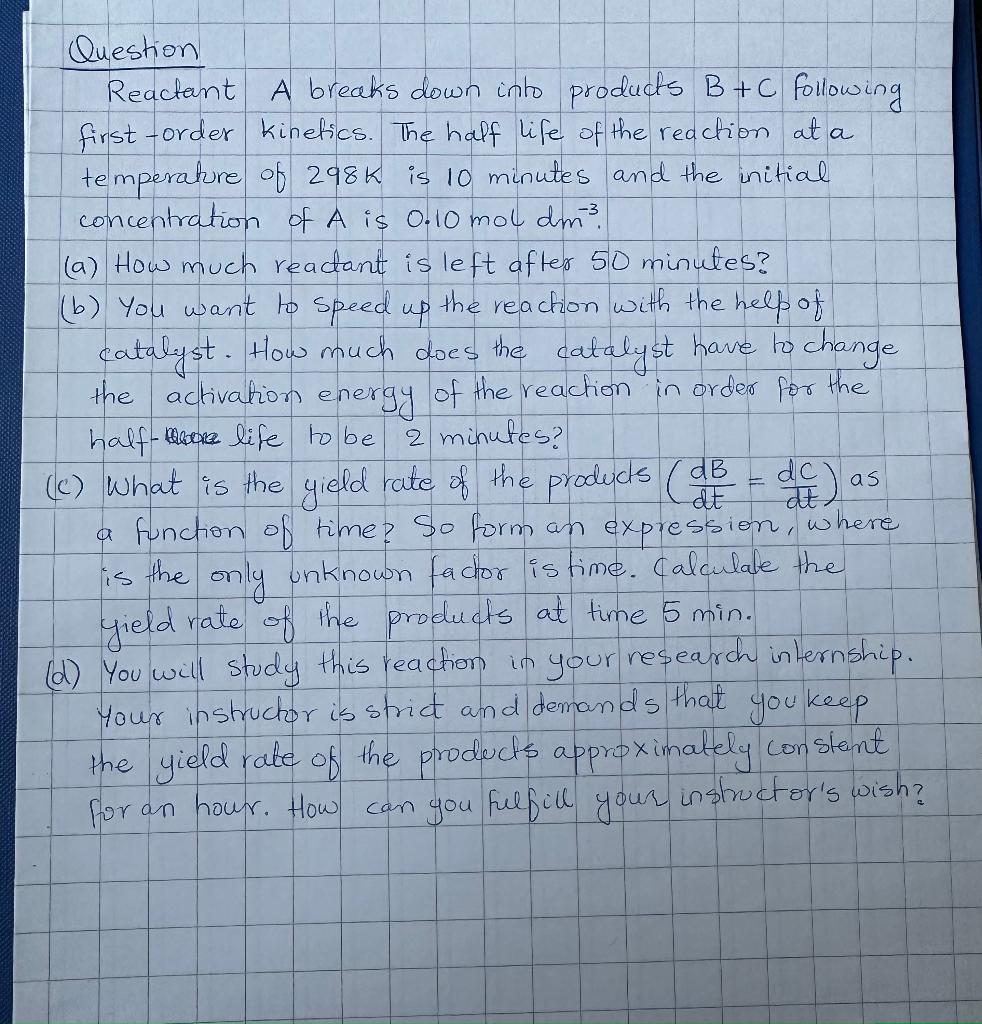 Question
Reactant A breaks down into products B + C following
first-order kinetics. The half life of the reaction at a
temperature of 298K is 10 minutes and the initial
concentration of A is 0.10 mol dm⁻³.
(a) How much reactant is left after 50 minutes?
(b) You want to speed up the reaction with the help of
catalyst. How much does the catalyst have to change
the activation energy of the reaction in order for the
half- life to be 2 minutes?
(c) What is the yield rate of the products (dB/dt = dC/dt) as
a function of time? So form an expression, where
is the only unknown factor is time. Calculate the
yield rate of the products at time 5 min.
(d) You will study this reaction in your research internship.
Your instructor is strict and demands that you keep
the yield rate of the products approximately constant
for an hour. How can you fulfill your instructor's wish?